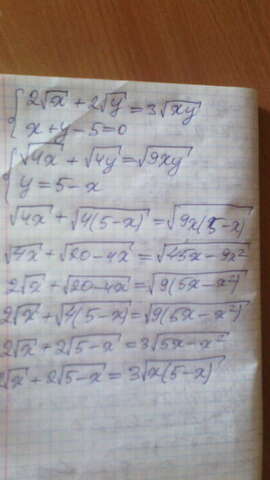 2√x + 2√y = 3√xy
x + y - 5 = 0
√4x + √4y = √9xy
y = 5 - x
√4x + √4(5-x) = √9x(5-x)
√4x + √20-4x = √45x-9x²
2√x + √20-4x = √9(5x-x²)
2√x + √4(5-x) = √9(5x-x²)
2√x + 2√5-x = 3√5x-x²
2√x + 2√5-x = 3√x(5-x)